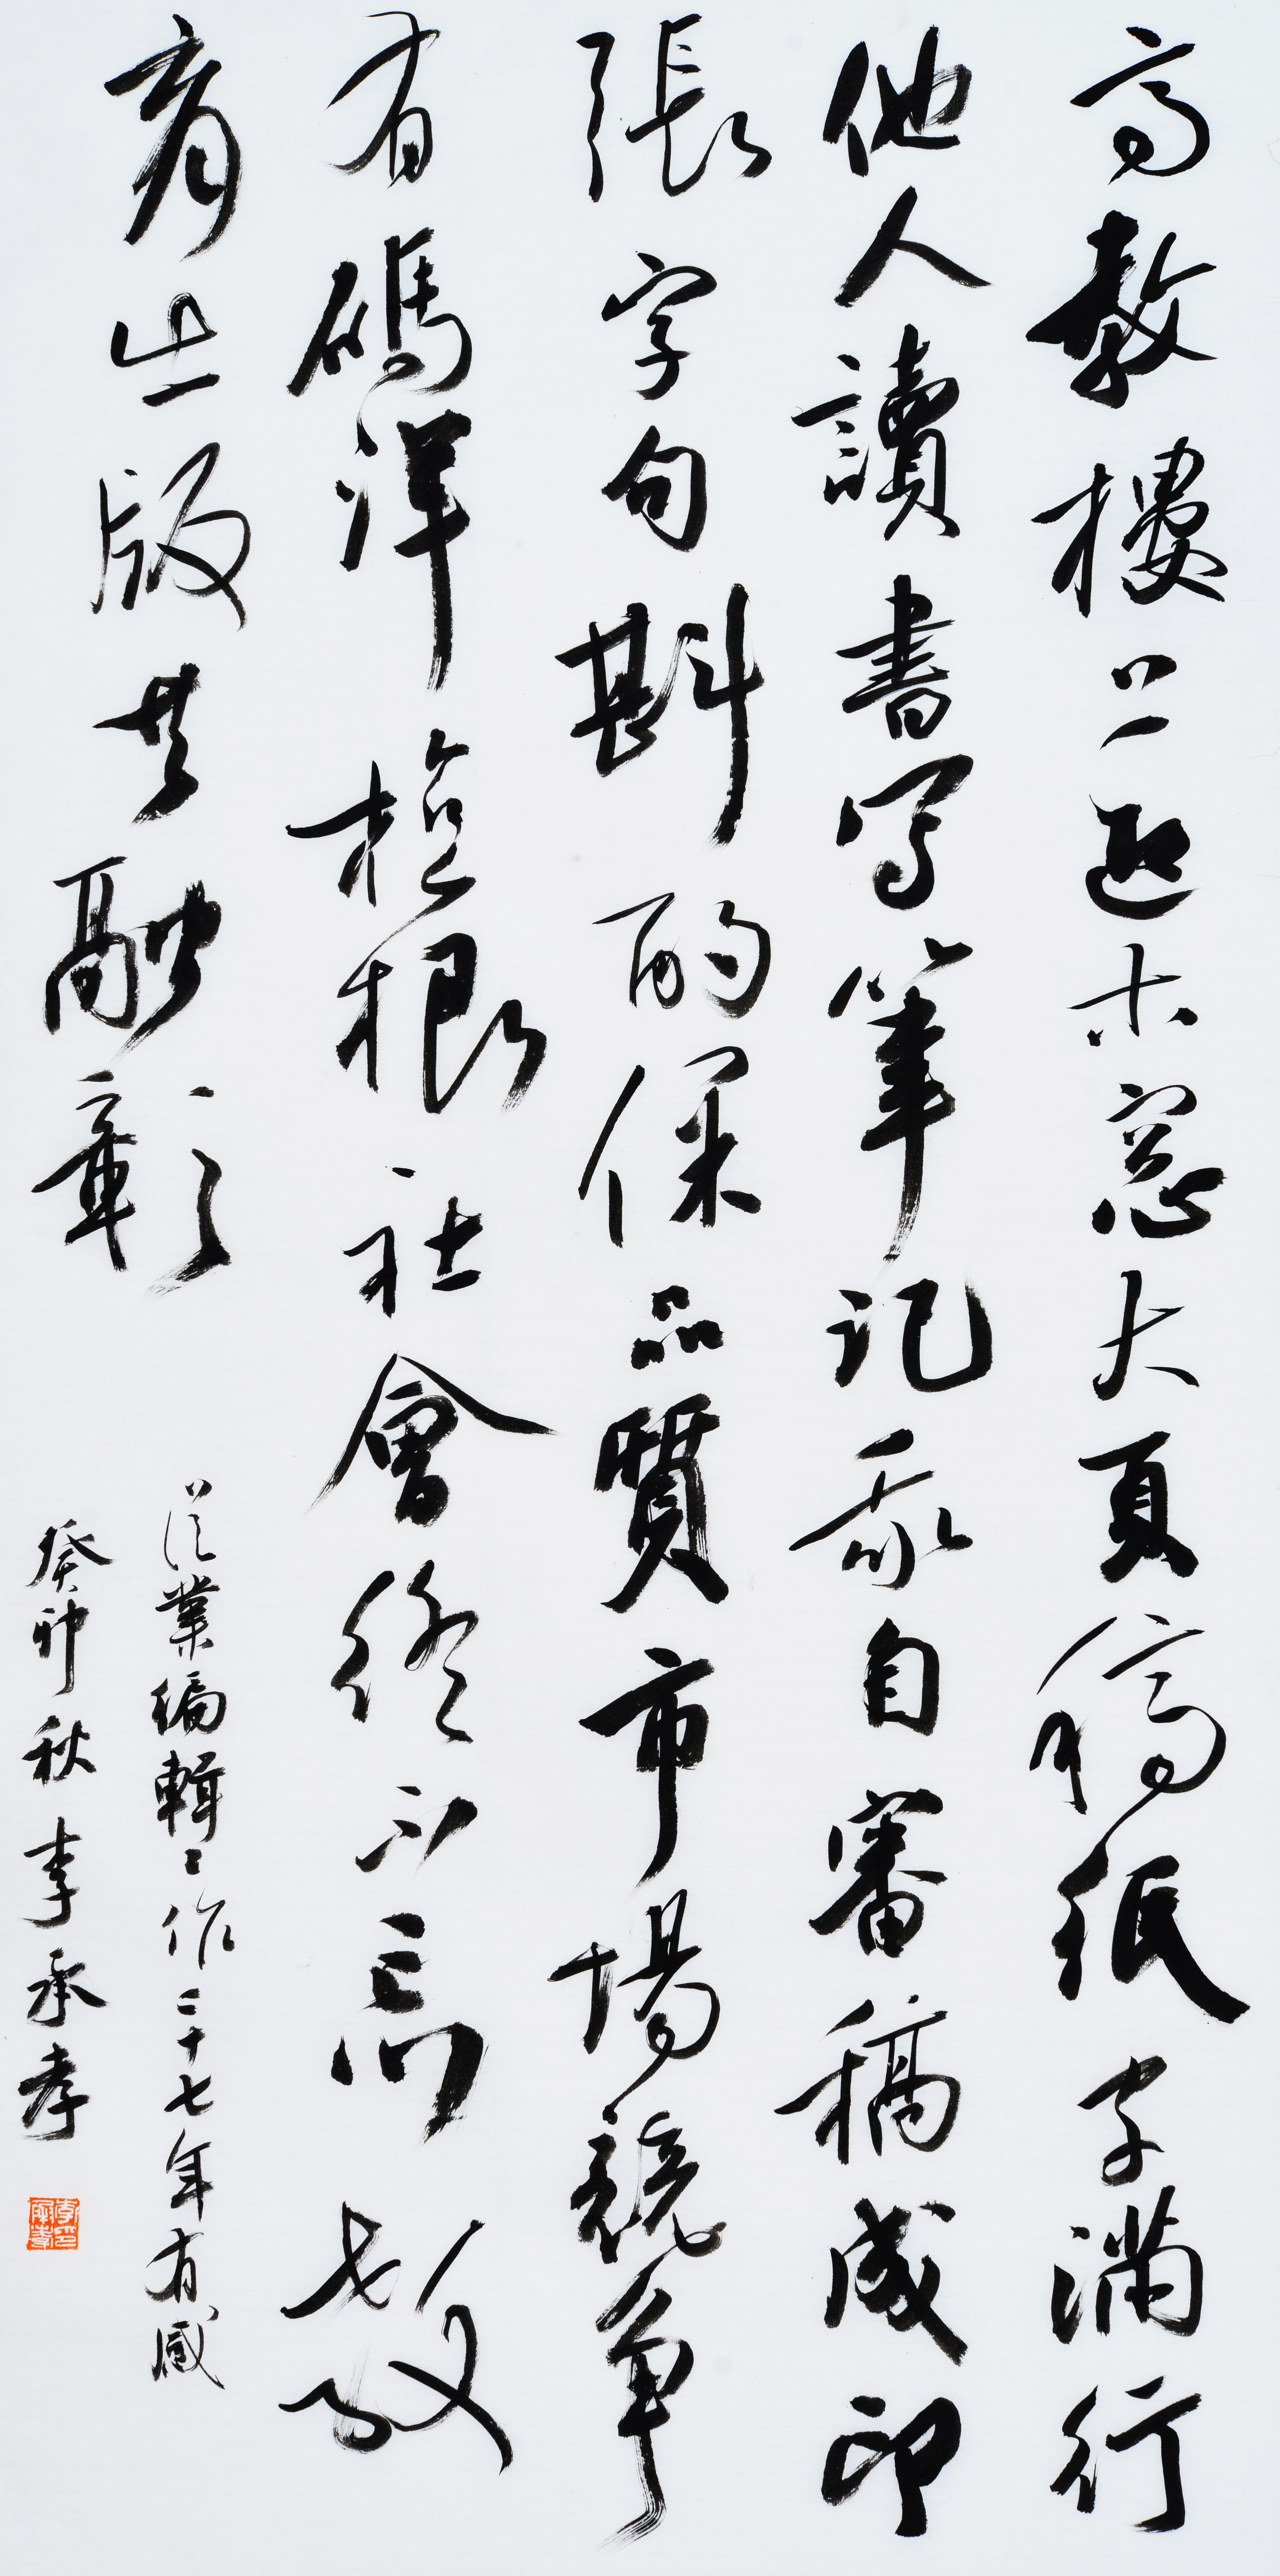 高教樓上近木窓大頁稿紙字滿行
他人讀書写筆記我自審稿成印
張字句斟酌保品質市場競争
有碼洋植根社會終不忘教
育出版共融彰
從業編輯工作二十七年有感
癸卯秋李承孝